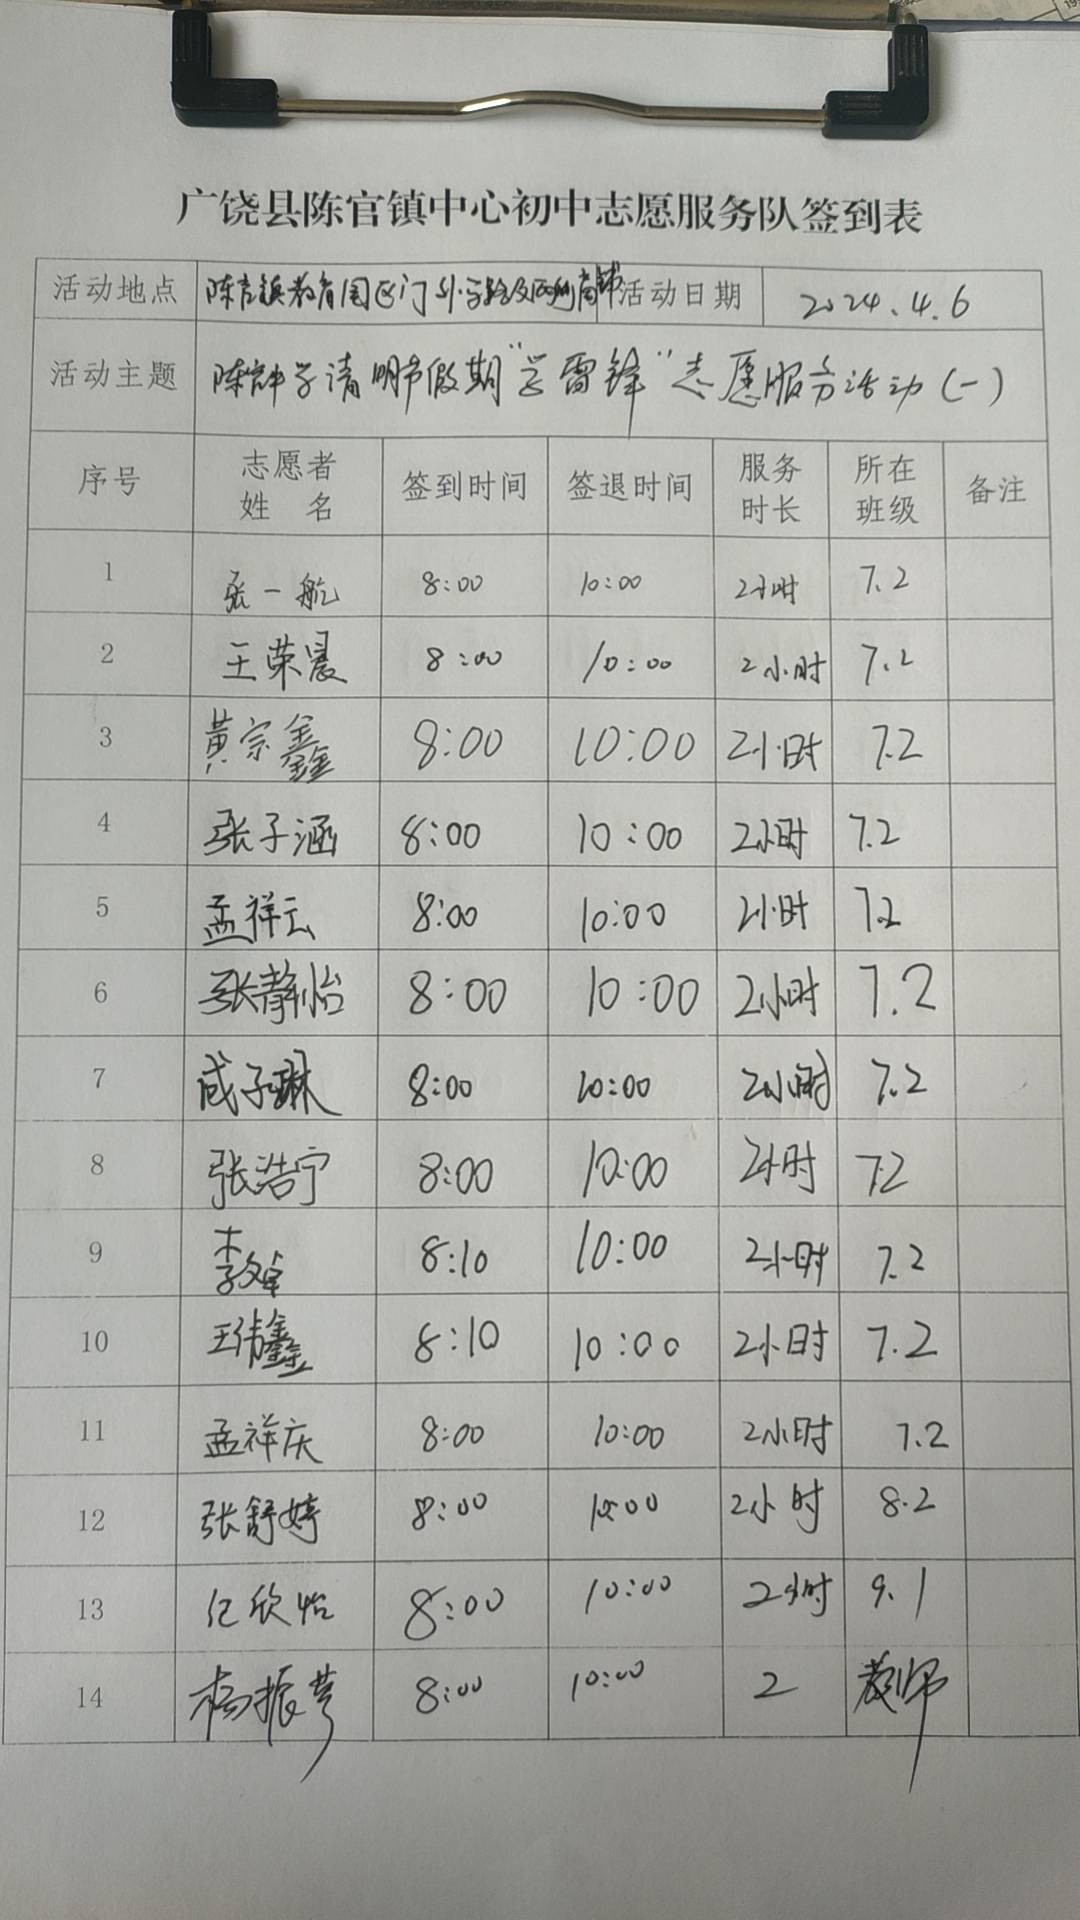 广饶县陈官镇中心初中志愿服务队签到表
活动地点 陈官镇教育园区门外 活动日期 2024.4.6
活动主题 陈官中学清明节假期“学雷锋”志愿服务活动(一)
序号 志愿者姓名 签到时间 签退时间 服务时长 所在班级 备注
1 张一航 8:00 10:00 2小时 7.2
2 王荣晨 8:00 10:00 2小时 7.2
3 黄宗鑫 8:00 10:00 2小时 7.2
4 张子涵 8:00 10:00 2小时 7.2
5 孟祥云 8:00 10:00 2小时 7.2
6 张静怡 8:00 10:00 2小时 7.2
7 成子琳 8:00 10:00 2小时 7.2
8 张浩宁 8:00 10:00 2小时 7.2
9 李 8:10 10:00 2小时 7.2
10 王伟鑫 8:10 10:00 2小时 7.2
11 孟祥庆 8:00 10:00 2小时 7.2
12 张舒婷 8:00 10:00 2小时 8.2
13 欣怡 8:00 10:00 2小时 9.1
14 杨振 8:00 10:00 2 教师